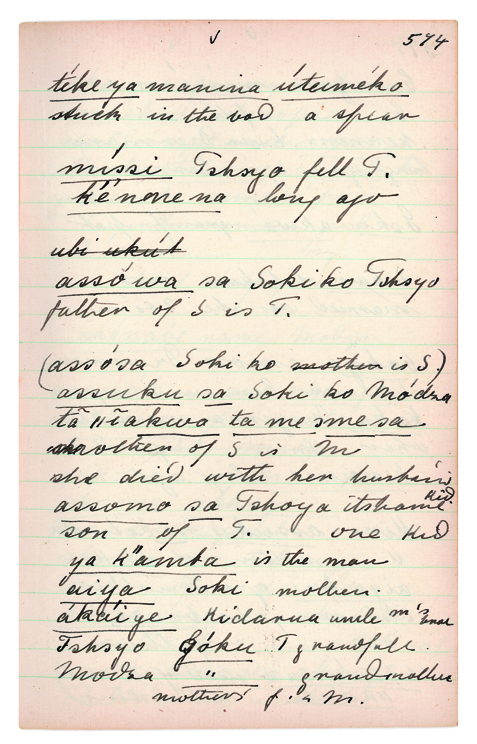 ✓ 574
téke ya manina úteuméko
stuck in the vod a spear
míssi Tshsyo fell T.
kë́none na long ago
ubi ukút
assówa sa Sokiko Tshsyo
father of S is T.
(assósa Soki ko mother is S)
assuku sa Soki ko Módza
ta me sme sa
mother of S is M
she died with her husband's
assomo sa Tshoya itshame
son of T. one Kid Kid.
ya k"amba is the man
aiya Soki mother.
ákáiye Kidarua uncle
Tshsyo Góku T grandfath.
Modza " grandmother
mothers f. a M.